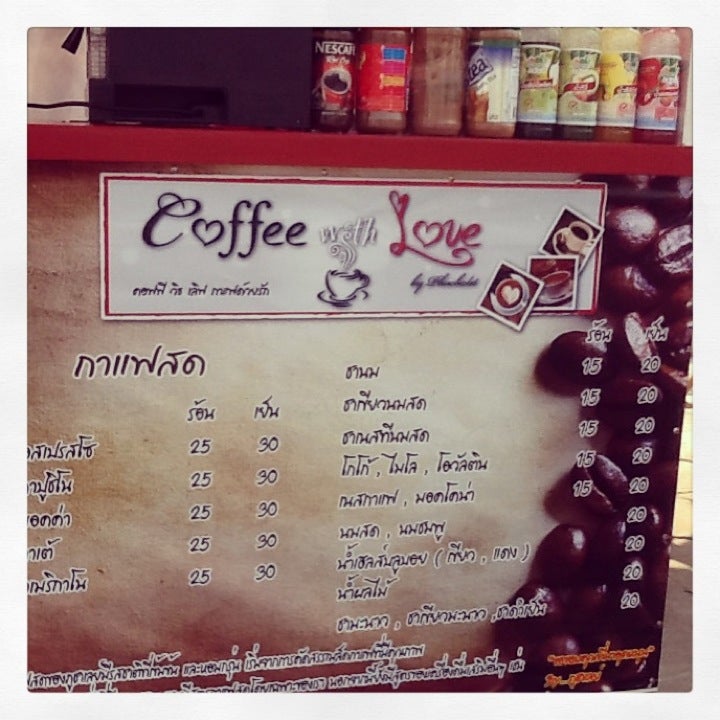 NESCAFE
Coffee with Love
คอฟฟี่ วิธ เลิฟ กาแฟด้วยรัก
by
กาแฟสด
ร้อน เย็น
เอสเปรสโซ 25 30
คาปูชิโน 25 30
มอคค่า 25 30
ลาเต้ 25 30
อเมริกาโน 25 30
ร้อน เย็น
ชานม 15 20
ชาเขียวนมสด 15 20
ชาเนสทีนมสด 15 20
โกโก้ , ไมโล , โอวัลติน 15 20
เนสกาแฟ , มอคโคน่า 15 20
นมสด , นมชมพู 20
น้ำเฮลส์บลูบอย ( เขียว , แดง ) 20
น้ำผลไม้ 20
ชามะนาว , ชาเขียวมะนาว , ชาดำเย็น 20
และหอมกรุ่น เริ่มจากการคัดสรรเมล็ดกาแฟที่มีคุณภาพ